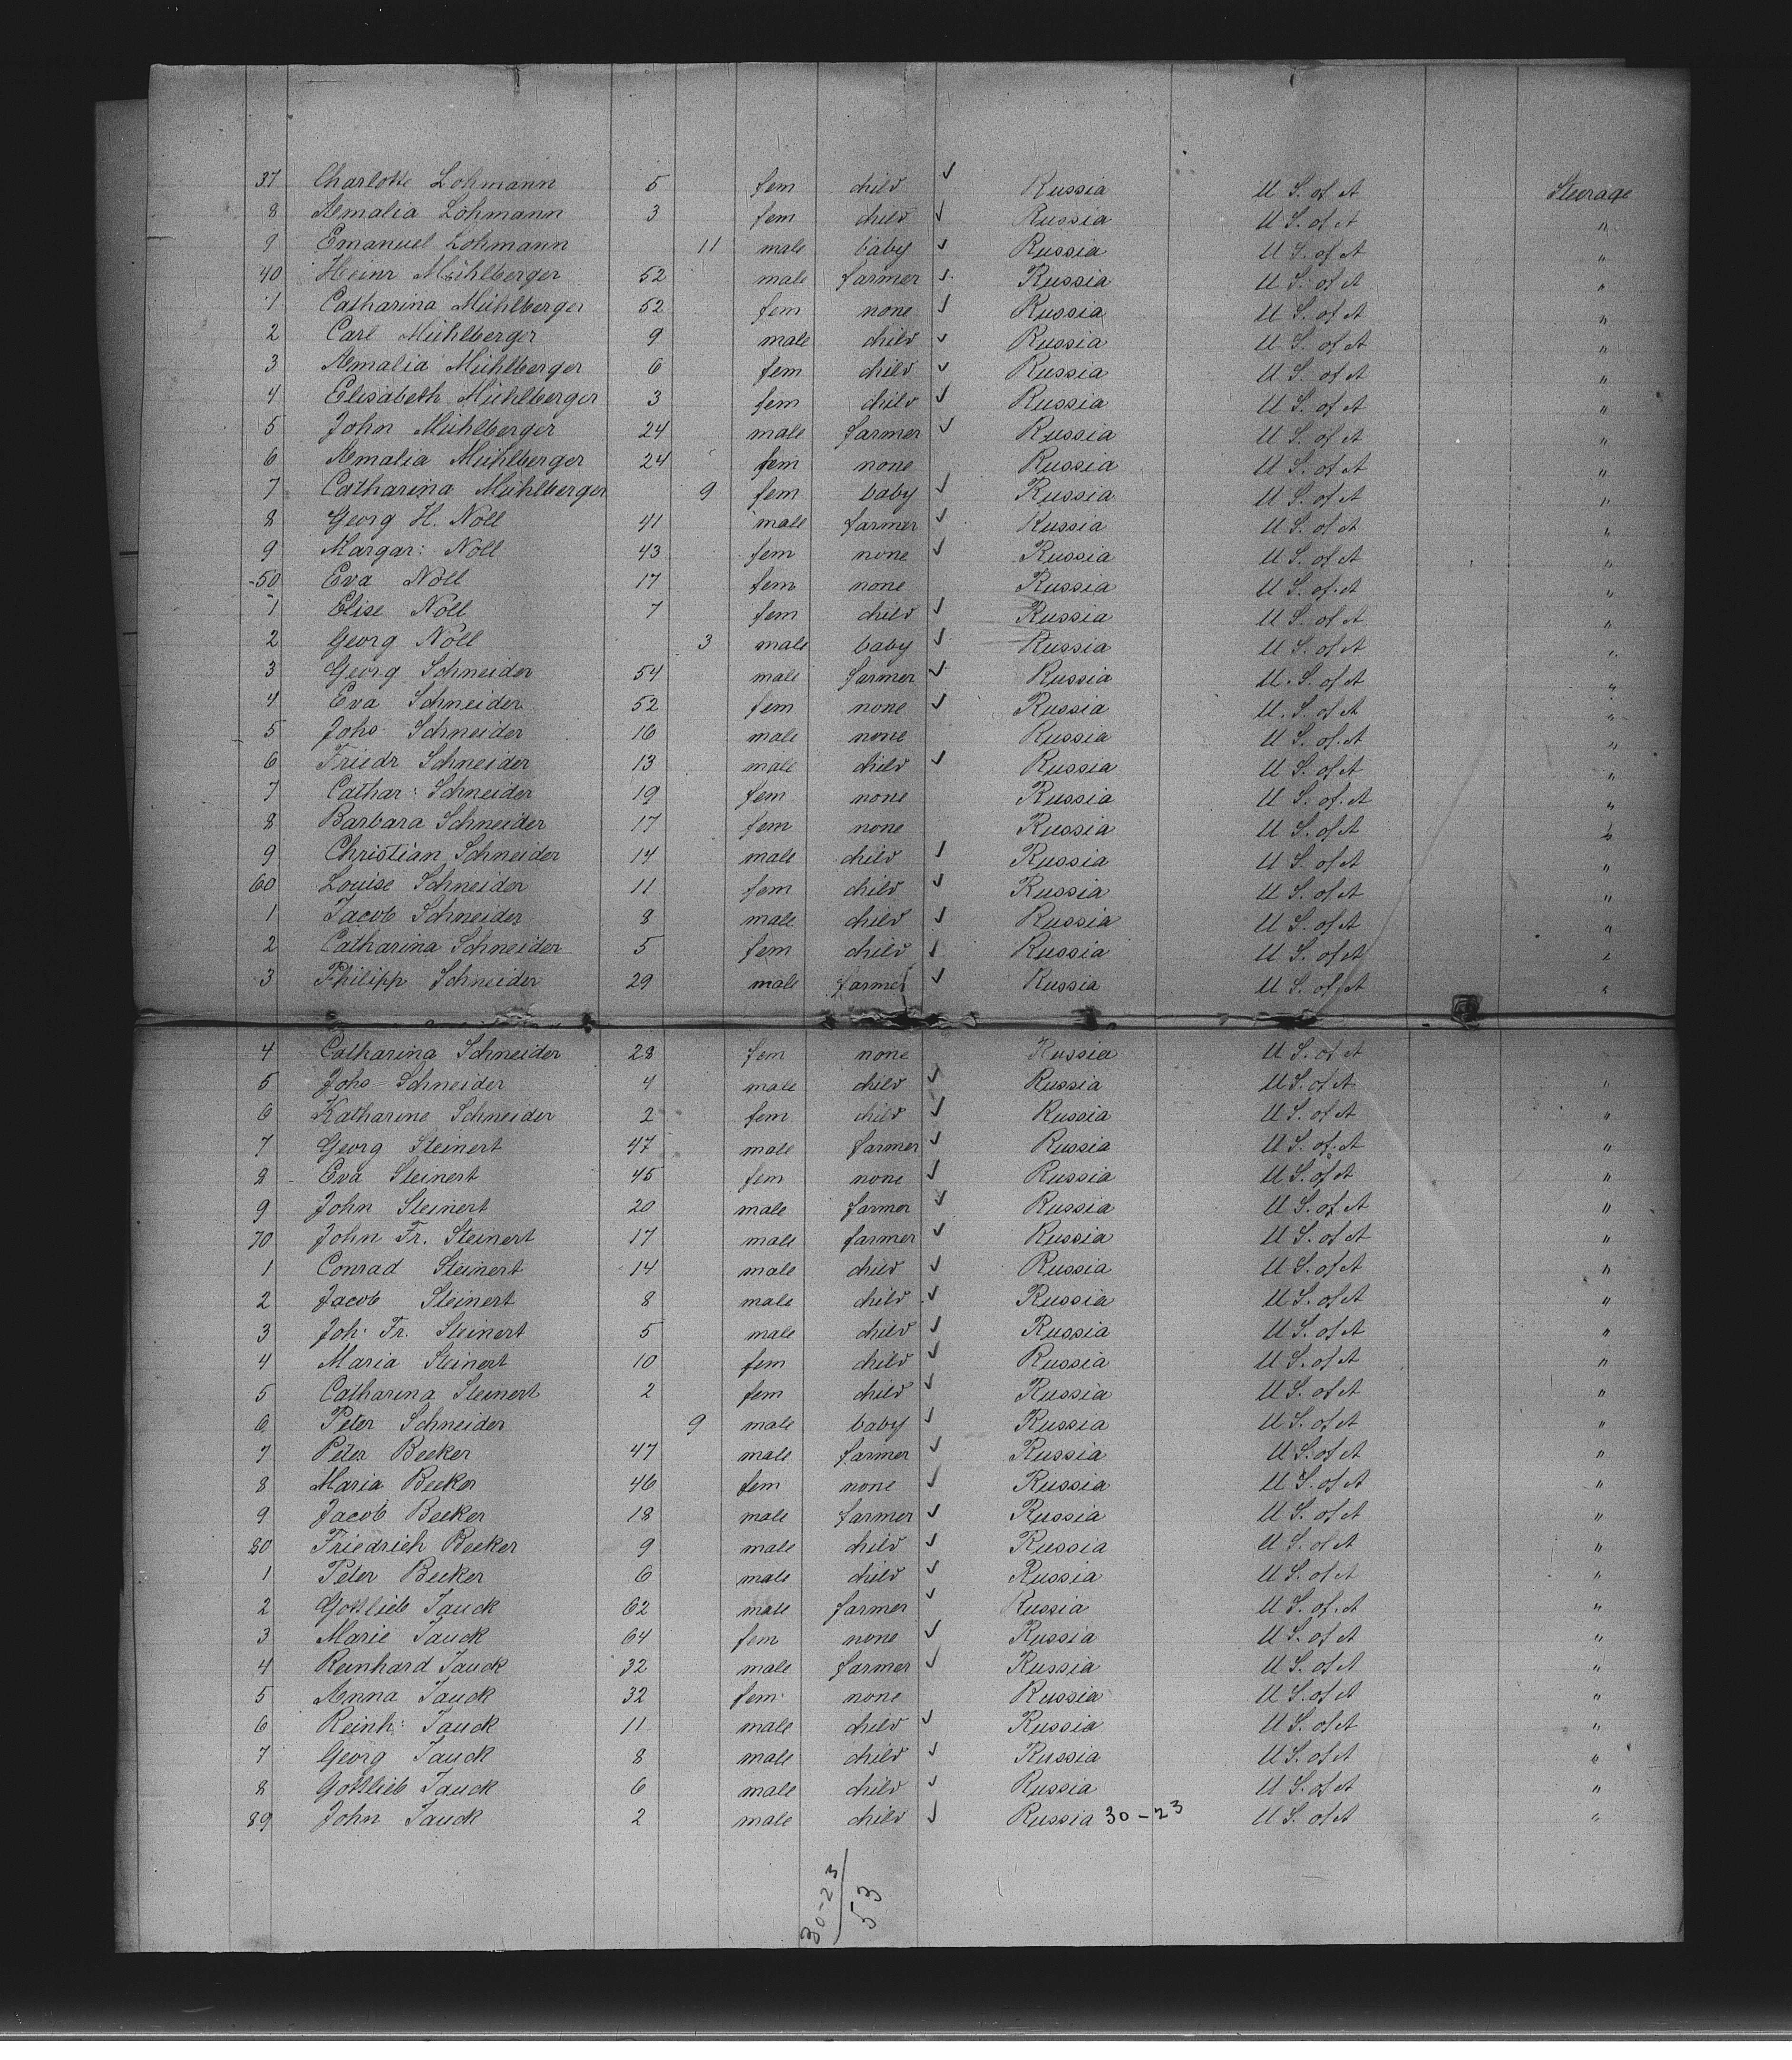 37 Charlotte Lohmann 5 fem child ✓ Russia U S. of A Steerage
8 Amalia Lohmann 3 fem child ✓ Russia U S. of A "
9 Emanuel Lohmann 11 male baby ✓ Russia U S. of A "
40 Heinr Mühlberger 52 male farmer ✓ Russia U S. of A "
1 Catharina Mühlberger 52 fem none ✓ Russia U S. of A "
2 Carl Mühlberger 9 male child ✓ Russia U S. of A "
3 Amalia Mühlberger 6 fem child ✓ Russia U S. of A "
4 Elisabeth Mühlberger 3 fem child ✓ Russia U S. of A "
5 John Mühlberger 24 male farmer ✓ Russia U S. of A "
6 Amalia Mühlberger 24 fem none Russia U S. of A "
7 Catharina Mühlberger 9 fem baby ✓ Russia U S. of A "
8 Georg H. Noll 41 male farmer ✓ Russia U S. of A "
9 Margar: Noll 43 fem none ✓ Russia U S. of A "
50 Eva Noll 17 fem none Russia U S. of A "
1 Elise Noll 7 fem child ✓ Russia U S. of A "
2 Georg Noll 3 male baby ✓ Russia U S. of A "
3 Georg Schneider 54 male farmer ✓ Russia U. S. of A "
4 Eva Schneider 52 fem none ✓ Russia U. S. of A "
5 Johs Schneider 16 male none Russia U S. of A "
6 Friedr Schneider 13 male child ✓ Russia U S. of A "
7 Cathar: Schneider 19 fem none Russia U S. of A "
8 Barbara Schneider 17 fem none Russia U S. of A "
9 Christian Schneider 14 male child ✓ Russia U S. of A "
60 Louise Schneider 11 fem child ✓ Russia U S. of A "
1 Jacob Schneider 8 male child ✓ Russia U S. of A "
2 Catharina Schneider 5 fem child ✓ Russia U S. of A "
3 Philipp Schneider 29 male farmer ✓ Russia U S. of A "
4 Catharina Schneider 28 fem none Russia U S. of A "
5 Johs Schneider 4 male child ✓ Russia U S. of A "
6 Katharine Schneider 2 fem child ✓ Russia U S. of A "
7 Georg Steinert 47 male farmer ✓ Russia U S. of A "
8 Eva Steinert 45 fem none ✓ Russia U S. of A "
9 John Steinert 20 male farmer ✓ Russia U S. of A "
70 John Fr. Steinert 17 male farmer ✓ Russia U S. of A "
1 Conrad Steinert 14 male child ✓ Russia U S. of A "
2 Jacob Steinert 8 male child ✓ Russia U S. of A "
3 Joh: Fr. Steinert 5 male child ✓ Russia U S. of A "
4 Maria Steinert 10 fem child ✓ Russia U S. of A "
5 Catharina Steinert 2 fem child ✓ Russia U S. of A "
6 Peter Schneider 9 male baby ✓ Russia U S. of A "
7 Peter Becker 47 male farmer ✓ Russia U S. of A "
8 Maria Becker 46 fem none ✓ Russia U S. of A "
9 Jacob Becker 18 male farmer ✓ Russia U S. of A "
80 Friedrich Becker 9 male child ✓ Russia U S. of A "
1 Peter Becker 6 male child ✓ Russia U S. of A "
2 Gottlieb Jauck 62 male farmer ✓ Russia U S. of A "
3 Marie Jauck 64 fem none ✓ Russia U S. of A "
4 Reinhard Jauck 32 male farmer ✓ Russia U S. of A "
5 Anna Jauck 32 fem none Russia U S. of A "
6 Reinh: Jauck 11 male child ✓ Russia U S. of A "
7 Georg Jauck 8 male child ✓ Russia U S. of A "
8 Gottlieb Jauck 6 male child ✓ Russia U S. of A "
89 John Jauck 2 male child ✓ Russia 30-23 U S. of A "
30-23
53